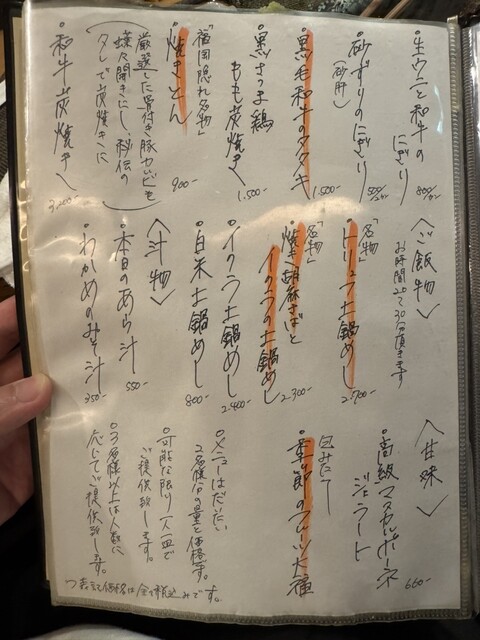 ・生ウニと和牛の
にぎり 800/2カン
・砂ずりのにぎり 500/2カン
(砂肝)
・黒毛和牛のタタキ 1,500-
・黒さつま鶏
もも炭焼き 1,500-
「福岡隠れ名物」
・焼きとん 900-
厳選した骨付き豚カルビを
蝶々開きにし、秘伝の
タレで炭焼きに
・和牛炭焼き 3,200-
〈ご飯物〉
お時間20〜30分頂きます
「名物」
・トリュフ土鍋めし 2,700-
「名物」
・焼き胡麻さばと
イクラの土鍋めし 2,300-
・イクラ土鍋めし 2,400-
・白米土鍋めし 800-
〈汁物〉
・本日のあら汁 550-
・わかめのみそ汁 350-
〈甘味〉
・高級マスカルポーネ
ジェラート 660-
包みたて
・季節のフルーツ大福
・メニューはだいたい
2名様分の量と価格です。
・可能な限り一人一皿で
ご提供致します。
・3名様以上は人数に
応じてご提供致します。
つ表記価格は全て税込みです。